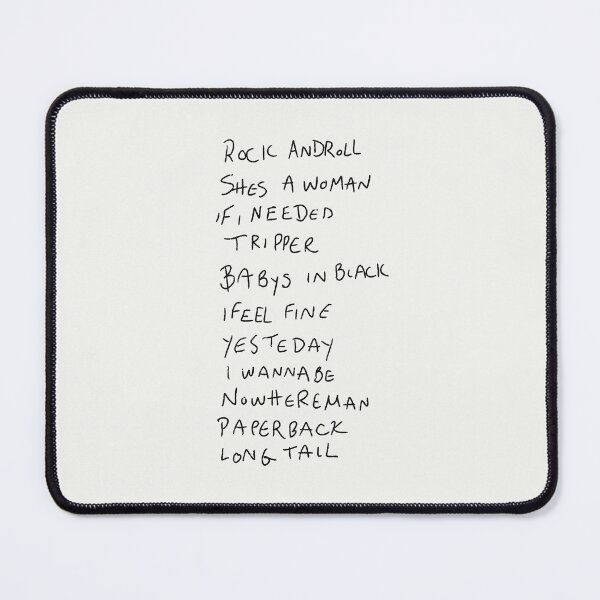 ROCK ANDROLL
SHES A WOMAN
IF I NEEDED
TRIPPER
BABYS IN BLACK
I FEEL FINE
YESTEDAY
I WANNABE
NOWHEREMAN
PAPERBACK
LONG TALL